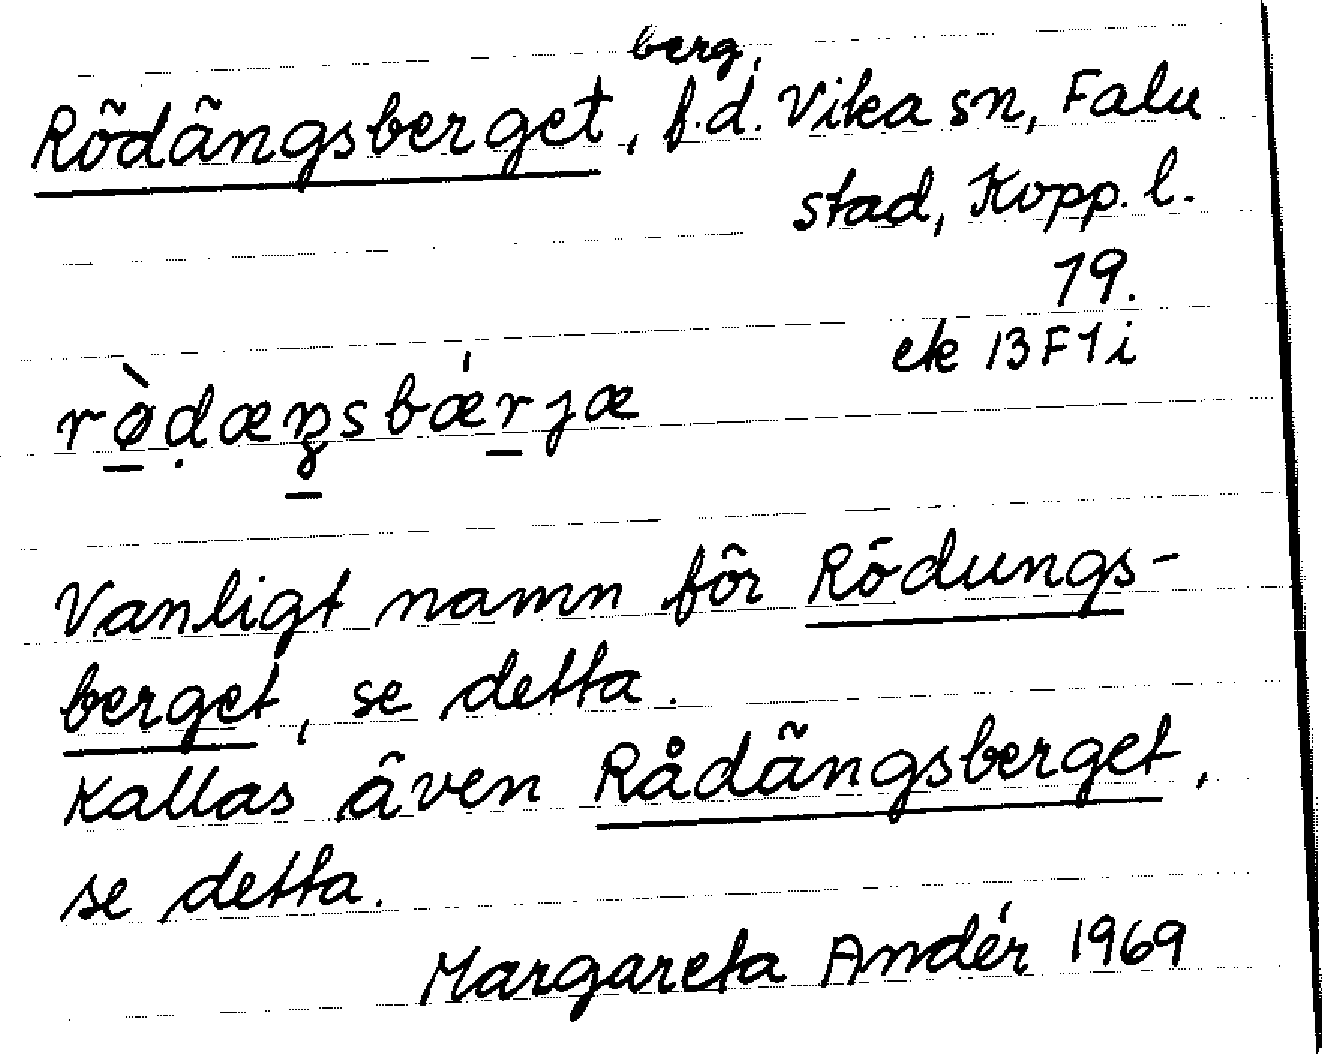 berg,
Rödängsberget, f.d. Vika sn, Falu
stad, Kopp. l.
19.
ek 13F1i
rø̀dæŋsbǽrjæ
Vanligt namn för Rödungs-
berget, se detta.
Kallas även Rådängsberget,
se detta.
Margareta Andér 1969